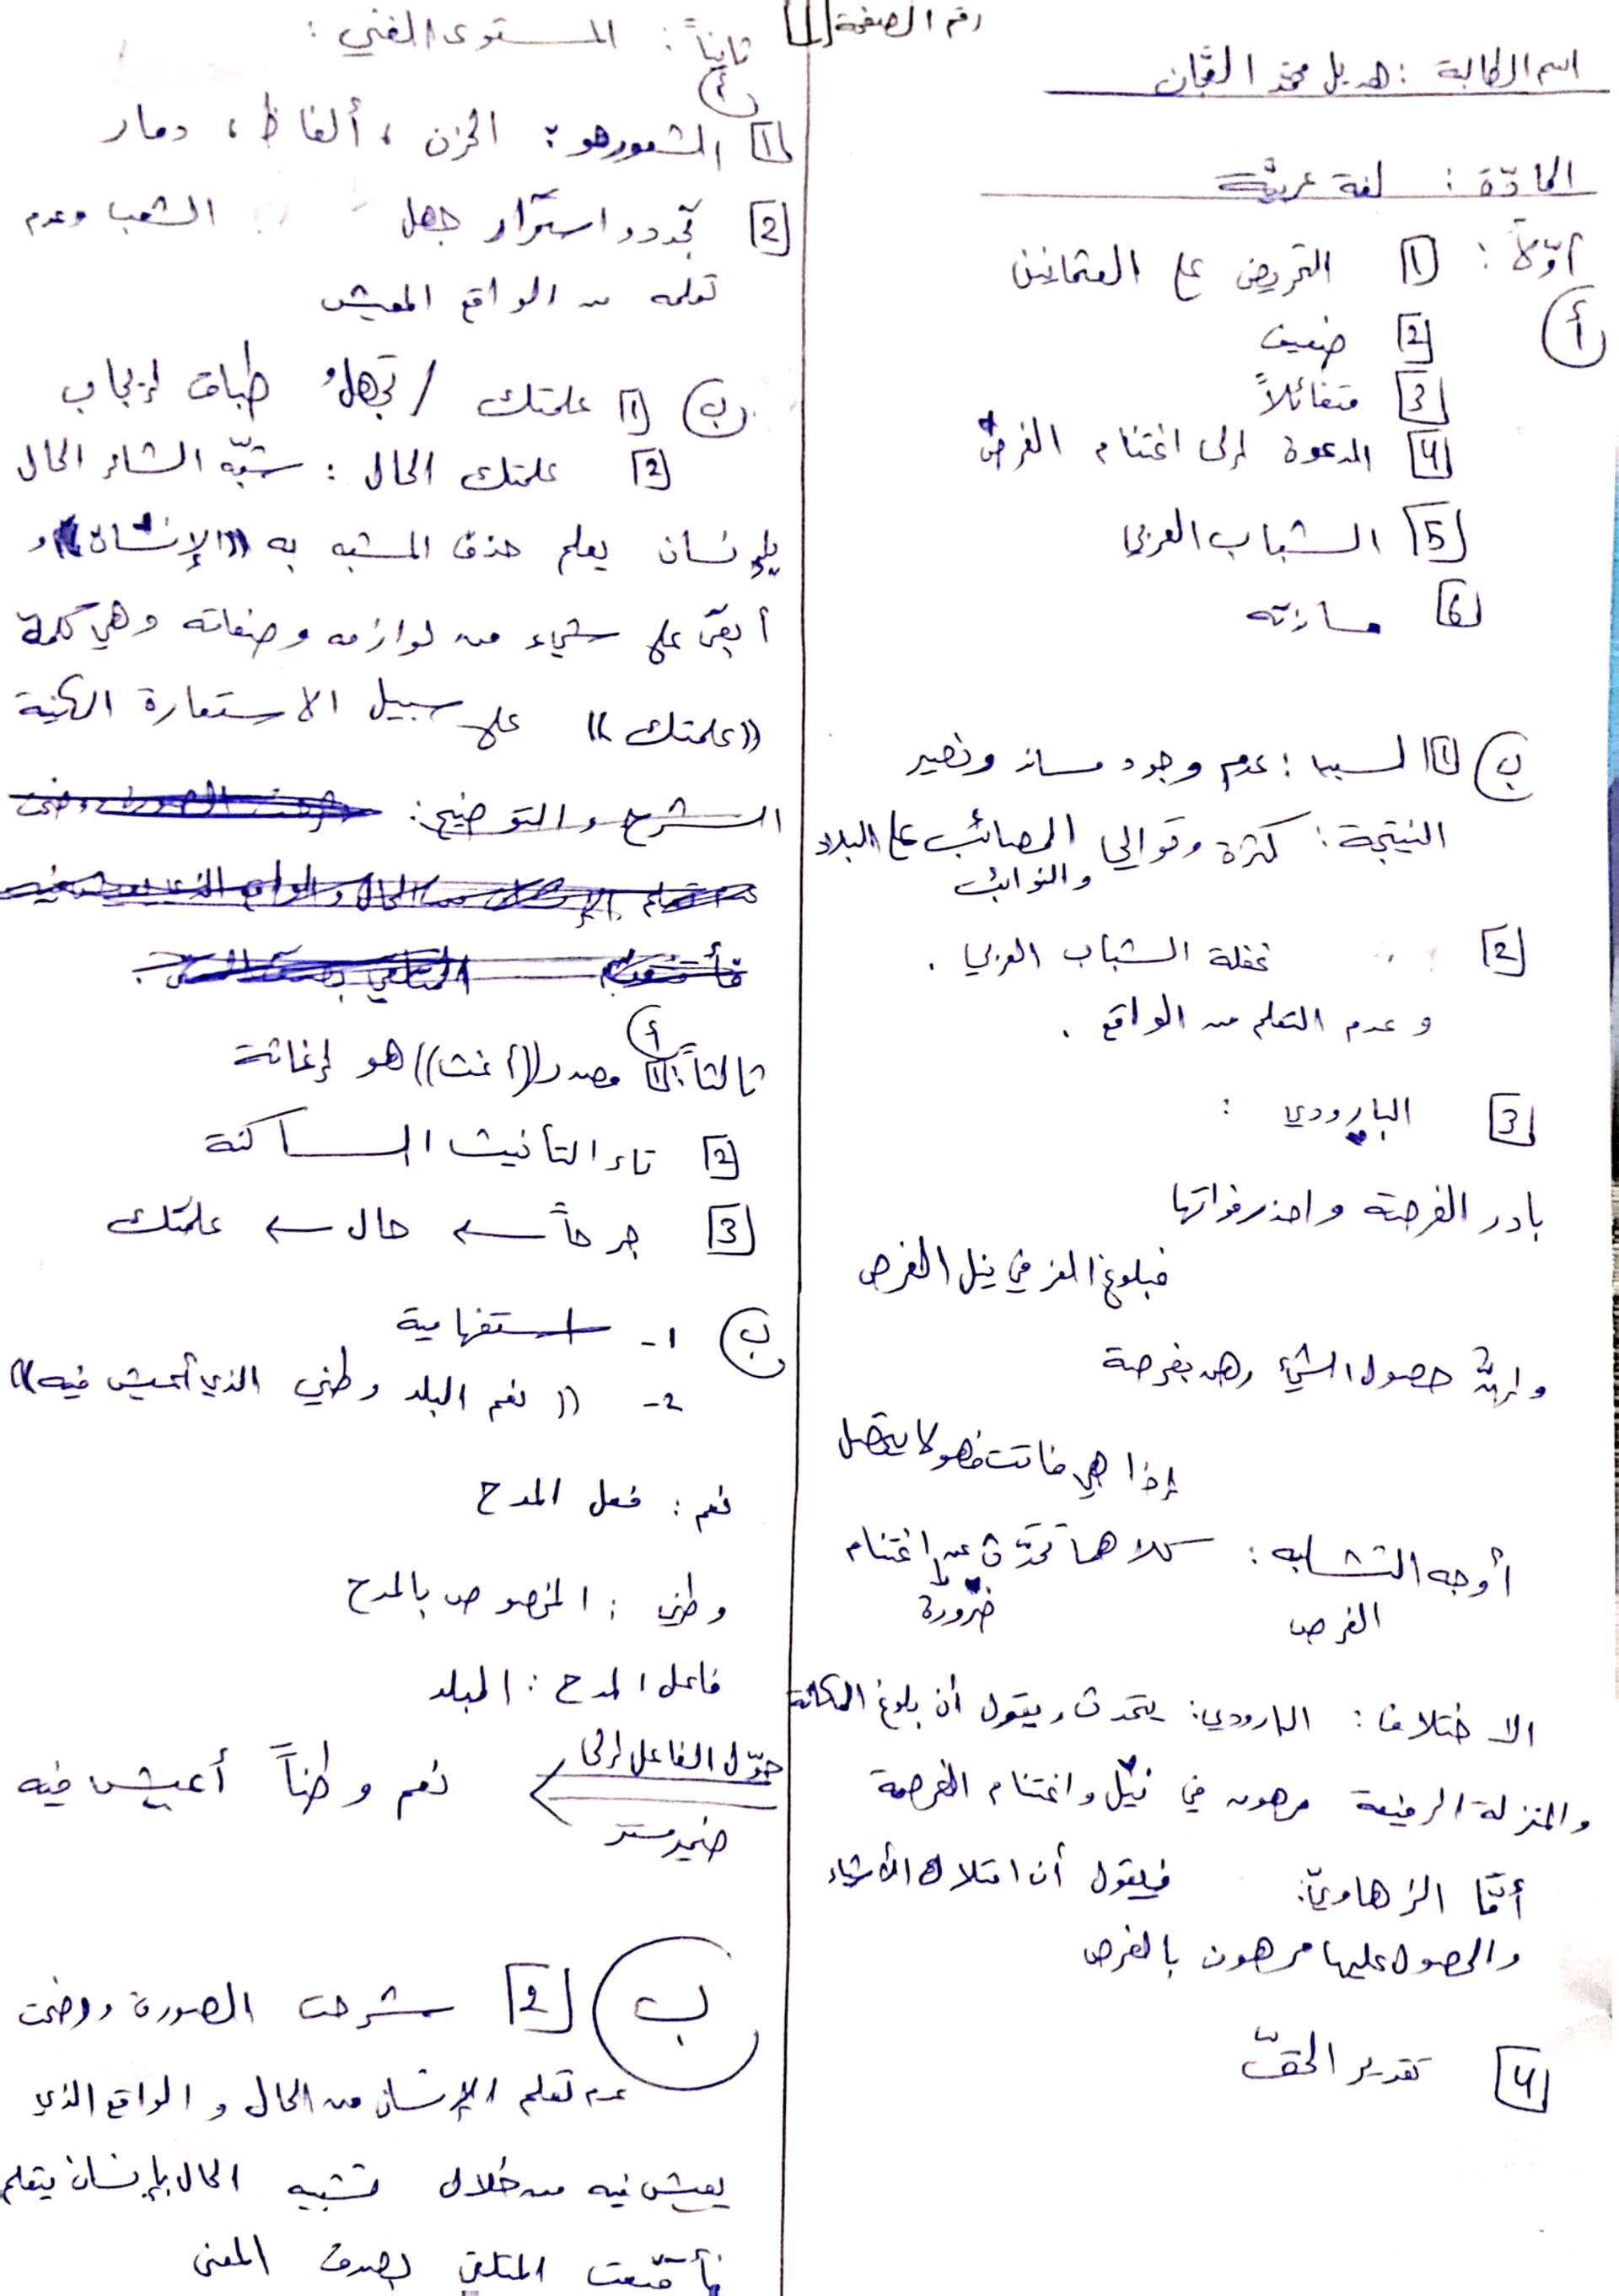 رقم الصفحة 1
اسم الطالبة : هديل محمد القبّان
المادّة : لغة عربيّة
أوّلاً :
أ
1 التحريض على العثمانيين
2 ضعيف
3 متفائلاً
4 الدعوة إلى اغتنام الفرص
5 الشباب العربي
6 مساندته
ب 1 السبب : عدم وجود مساند ونصير
النتيجة : كثرة وتوالي المصائب على البلاد
والنوائب
2 غفلة الشباب العربي .
وعدم التعلم من الواقع .
3 البارودي :
بادر الفرصة واحذر فواتها
فبلوغ العز في نيل الفرص
وإنّ حصول الشيء رهن بفرصة
إذا هي فاتت فهو لا يتحصل
أوجه التشابه : كلاهما تحدّث عن اغتنام
ضرورة
الفرص
الاختلاف : البارودي : يتحدث ويقول أن بلوغ المكانة
والمنزلة الرفيعة مرهون في نيل واغتنام الفرصة
أمّا الزهاويّ: فيقول أن امتلاك الأشياء
والحصول عليها مرهون بالفرص
4 تقدير الحقّ
ثانياً : المستوى الفني :
أ
1 الشعور هو : الحزن ، ألفاظ ، دمار
2 تجدد واستمرار جهل الشعب وعدم
تعلمه من الواقع المعيش
ب 1 علمتك / تجهلُ طباق إيجاب
2 علمتك الحال : شبّه الشاعر الحال
بإنسان يعلم حذف المشبه به ((الإنسان)) و
أبقى على شيء من لوازمه وصفاته وهي كلمة
((علمتك)) على سبيل الاستعارة المكنية
الشرح والتوضيح :
ثالثاً : أ
1 مصدر ((أغث)) هو إغاثة
2 تاء التأنيث الساكنة
3 جرحاً ← حال ← علمتك
ب 1- استفهامية
2- ((نعم البلد وطني الذي أعيش فيه))
نعم : فعل المدح
وطني : المخصوص بالمدح
فاعل المدح : البلد
حوّل الفاعل إلى
ضمير مستتر
نعم وطناً أعيش فيه
ب 2 شرحت الصورة ووضحت
عدم تعلم الإنسان من الحال والواقع الذي
يعيش فيه من خلال تشبيه الحال بإنسان يتعلم
فأقنعت المتلقي بصدق المعنى